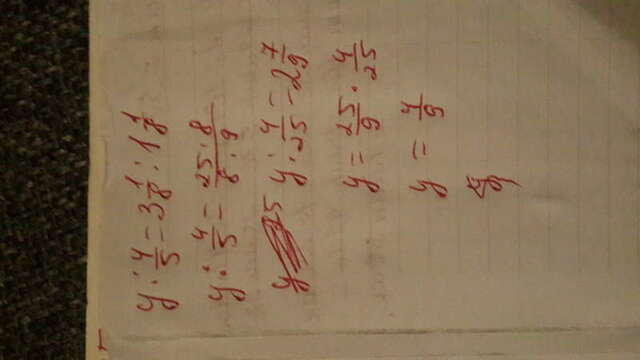 y : 4/5 = 3 1/8 : 1 1/8
y : 4/5 = 25·8/8·9
y : 4/25 = 2 7/9
y = 25/9 · 4/25
y = 4/9